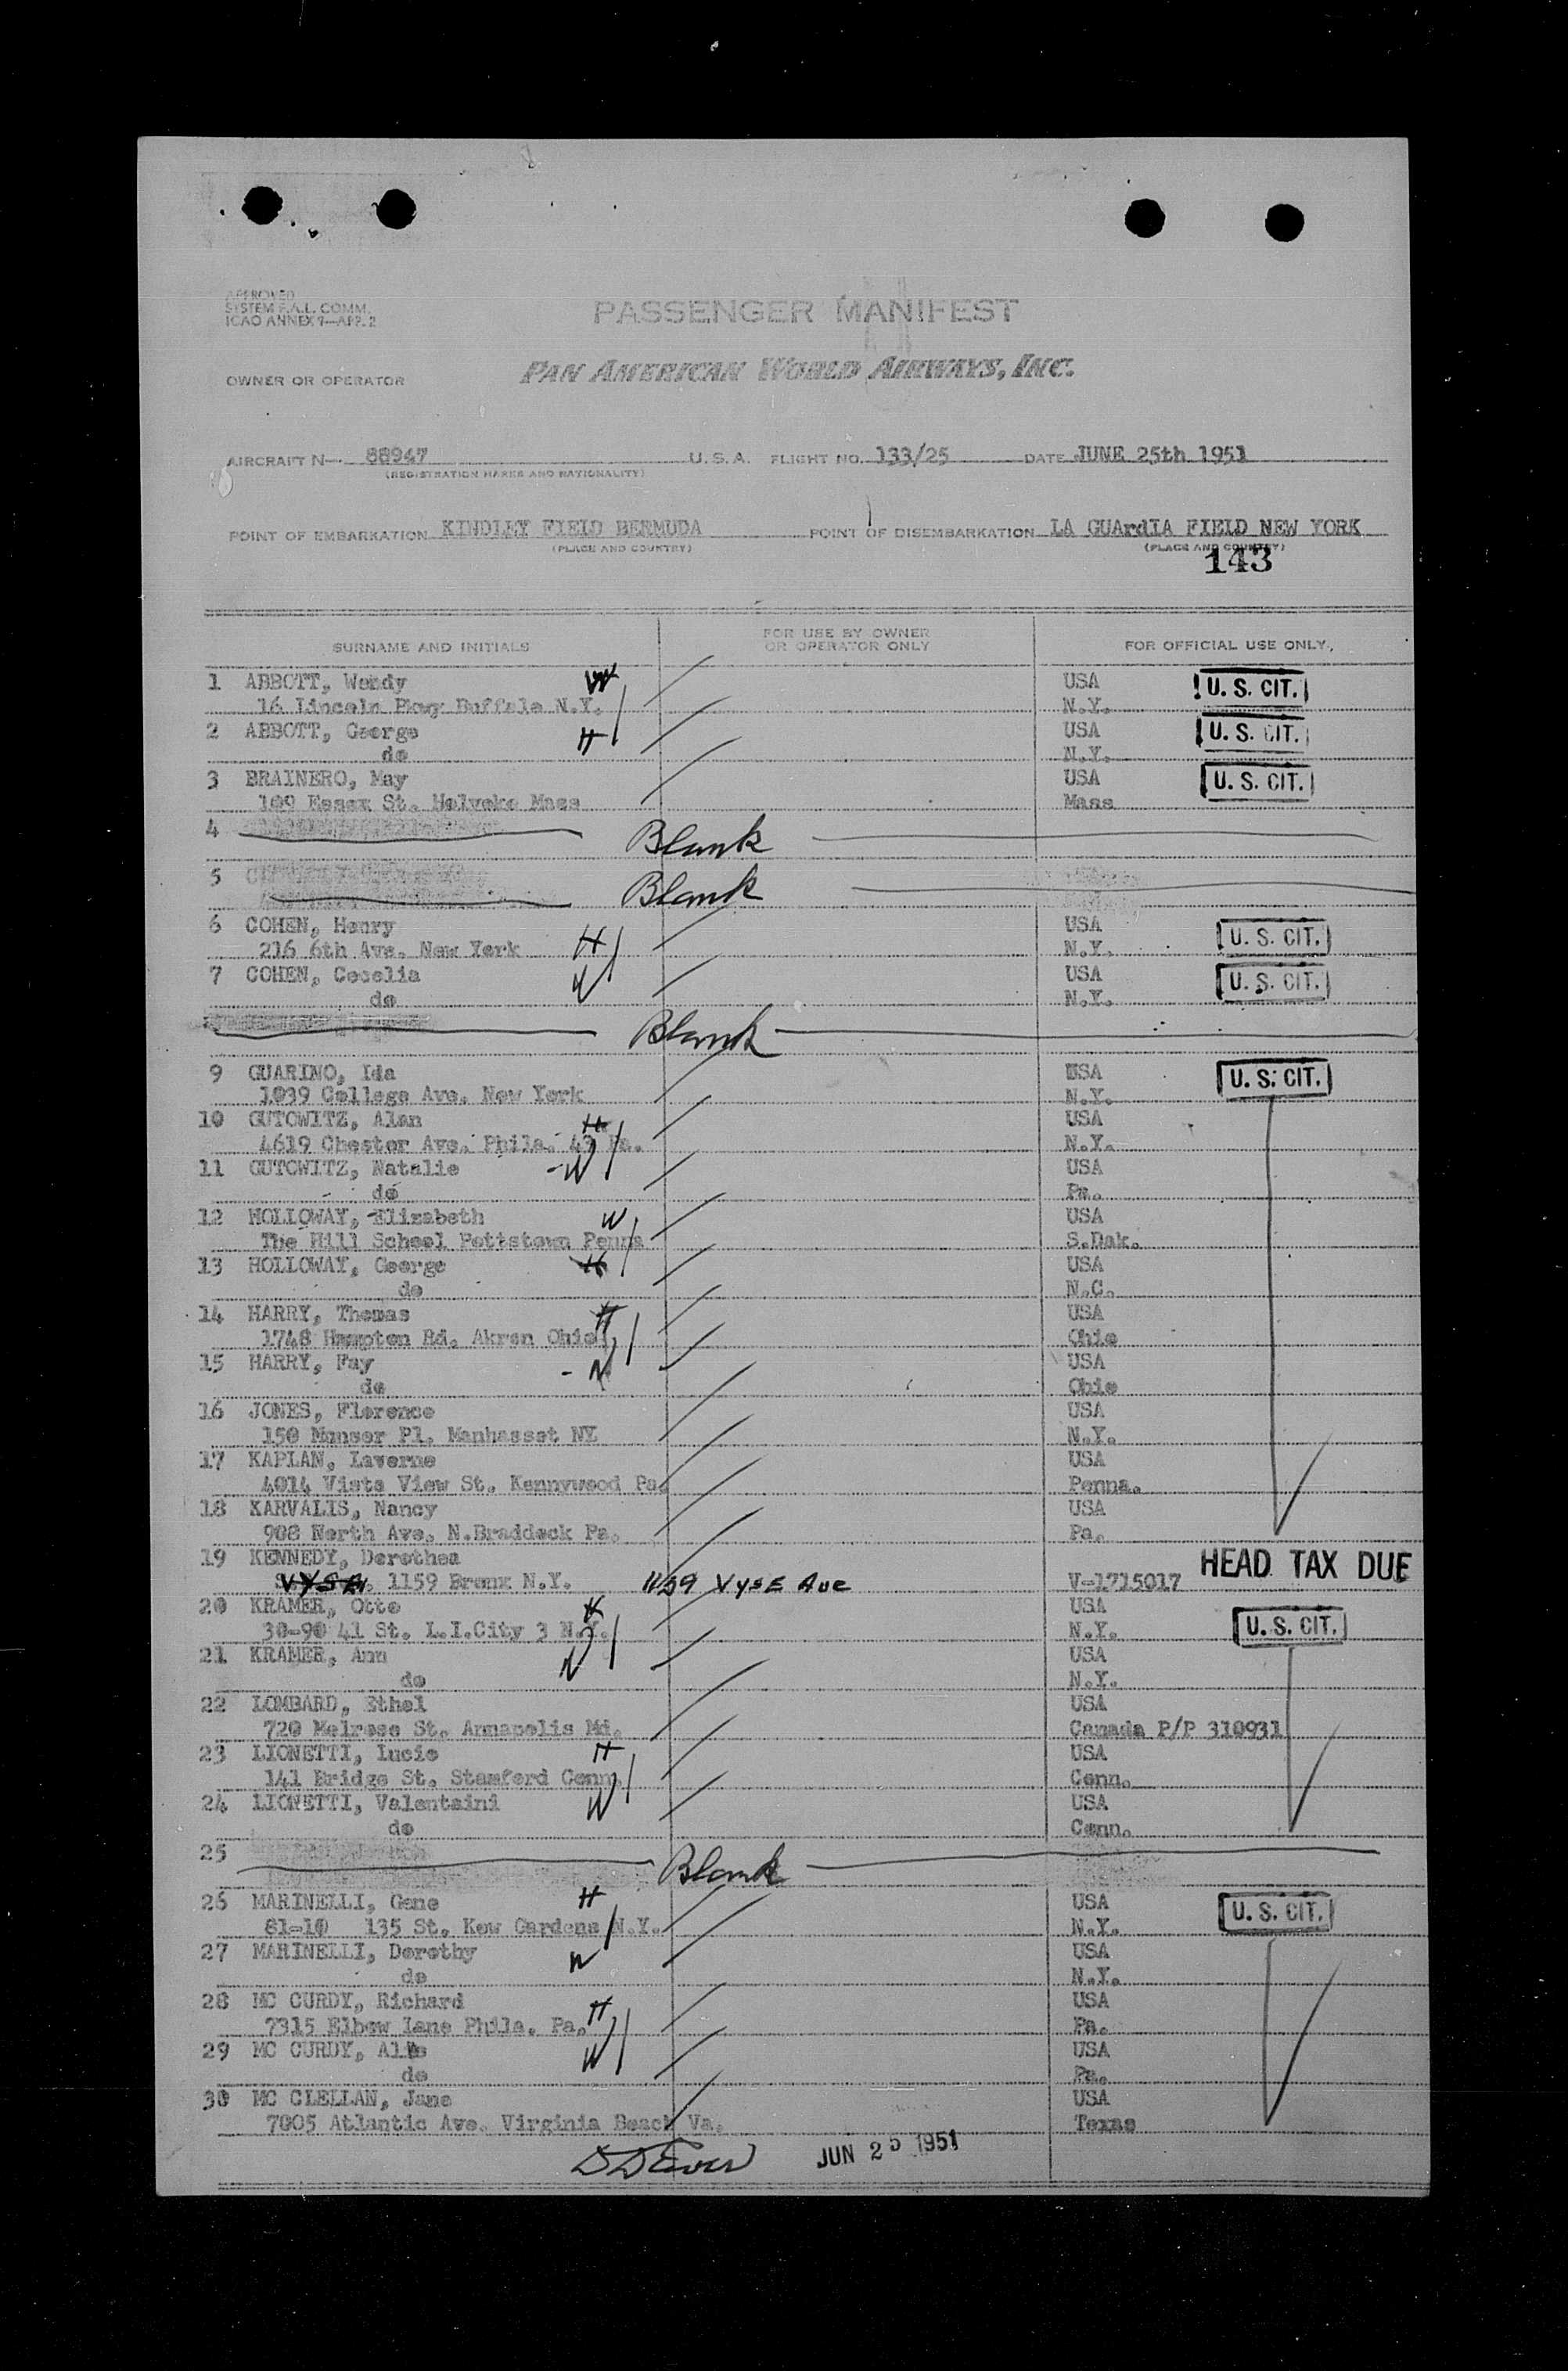 APPROVED
SYSTEM F.A.L. COMM.
ICAO ANNEX 9—APP. 2
PASSENGER MANIFEST
OWNER OR OPERATOR PAN AMERICAN WORLD AIRWAYS, INC.
AIRCRAFT N— 88947 U.S.A. FLIGHT NO. 133/25 DATE JUNE 25th 1951
(REGISTRATION MARKS AND NATIONALITY)
POINT OF EMBARKATION KINDLEY FIELD BERMUDA POINT OF DISEMBARKATION LA GUArdIA FIELD NEW YORK
(PLACE AND COUNTRY) (PLACE AND COUNTRY)
143
SURNAME AND INITIALS FOR USE BY OWNER OR OPERATOR ONLY FOR OFFICIAL USE ONLY
1 ABBOTT, Wendy W USA U. S. CIT.
16 Lincoln Pkwy Buffalo N.Y. N.Y.
2 ABBOTT, George H USA U. S. CIT.
do N.Y.
3 BRAINERO, May USA U. S. CIT.
109 Essex St. Holyoke Mass Mass
4 Blank
5 Blank
6 COHEN, Henry H USA U. S. CIT.
216 6th Ave. New York N.Y.
7 COHEN, Cecelia W USA U. S. CIT.
do N.Y.
Blank
9 GUARINO, Ida USA U. S. CIT.
1039 College Ave. New York N.Y.
10 GUTOWITZ, Alan H USA
4619 Chester Ave. Phila. 43 Pa. N.Y.
11 GUTOWITZ, Natalie W USA
do Pa.
12 HOLLOWAY, Elizabeth W USA
The Hill School Pottstown Penna S.Dak.
13 HOLLOWAY, George H USA
do N.C.
14 HARRY, Thomas H USA
1748 Hampton Rd. Akron Ohio Ohio
15 HARRY, Fay W USA
do Ohio
16 JONES, Florence USA
150 Munser Pl. Manhasset NY N.Y.
17 KAPLAN, Laverne USA
4014 Vista View St. Kennywood Pa. Penna.
18 KARVALIS, Nancy USA
908 North Ave. N.Braddock Pa. Pa.
19 KENNEDY, Dorothea HEAD TAX DUE
1159 Bronx N.Y. 1159 VYSE Ave V-1715017
20 KRAMER, Otto H USA U. S. CIT.
30-90 41 St. L.I.City 3 N.Y. N.Y.
21 KRAMER, Ann W USA
do N.Y.
22 LOMBARD, Ethel USA
720 Melrose St. Annapolis Md. Canada P/P 310931
23 LIONETTI, Lucio H USA
141 Bridge St. Stamford Conn. Conn.
24 LIONETTI, Valentaini W USA
do Conn.
25 Blank
26 MARINELLI, Gene H USA U. S. CIT.
81-10 135 St. Kew Gardens N.Y. N.Y.
27 MARINELLI, Dorothy W USA
do N.Y.
28 MC CURDY, Richard H USA
7315 Elbow Lane Phila. Pa. Pa.
29 MC CURDY, W USA
do Pa.
30 MC CLELLAN, Jane USA
7805 Atlantic Ave. Virginia Beach Va. Texas
JUN 25 1951